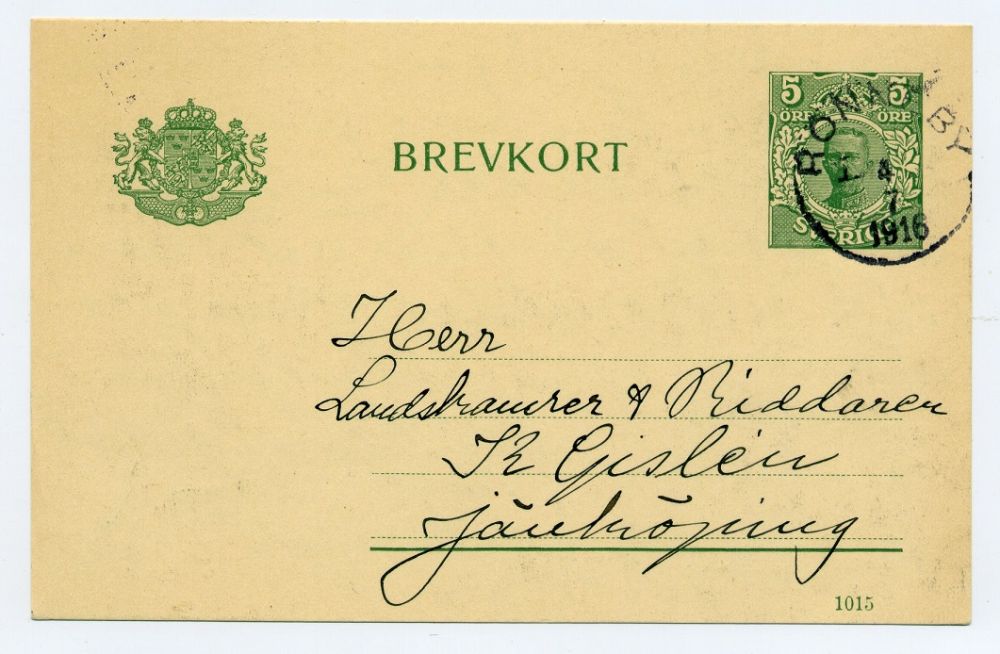 BREVKORT
5 5
ÖRE ÖRE
SVERIGE
4
7
1916
Herr
Landskamrer & Riddaren
K Gislén
Jönköping
1015